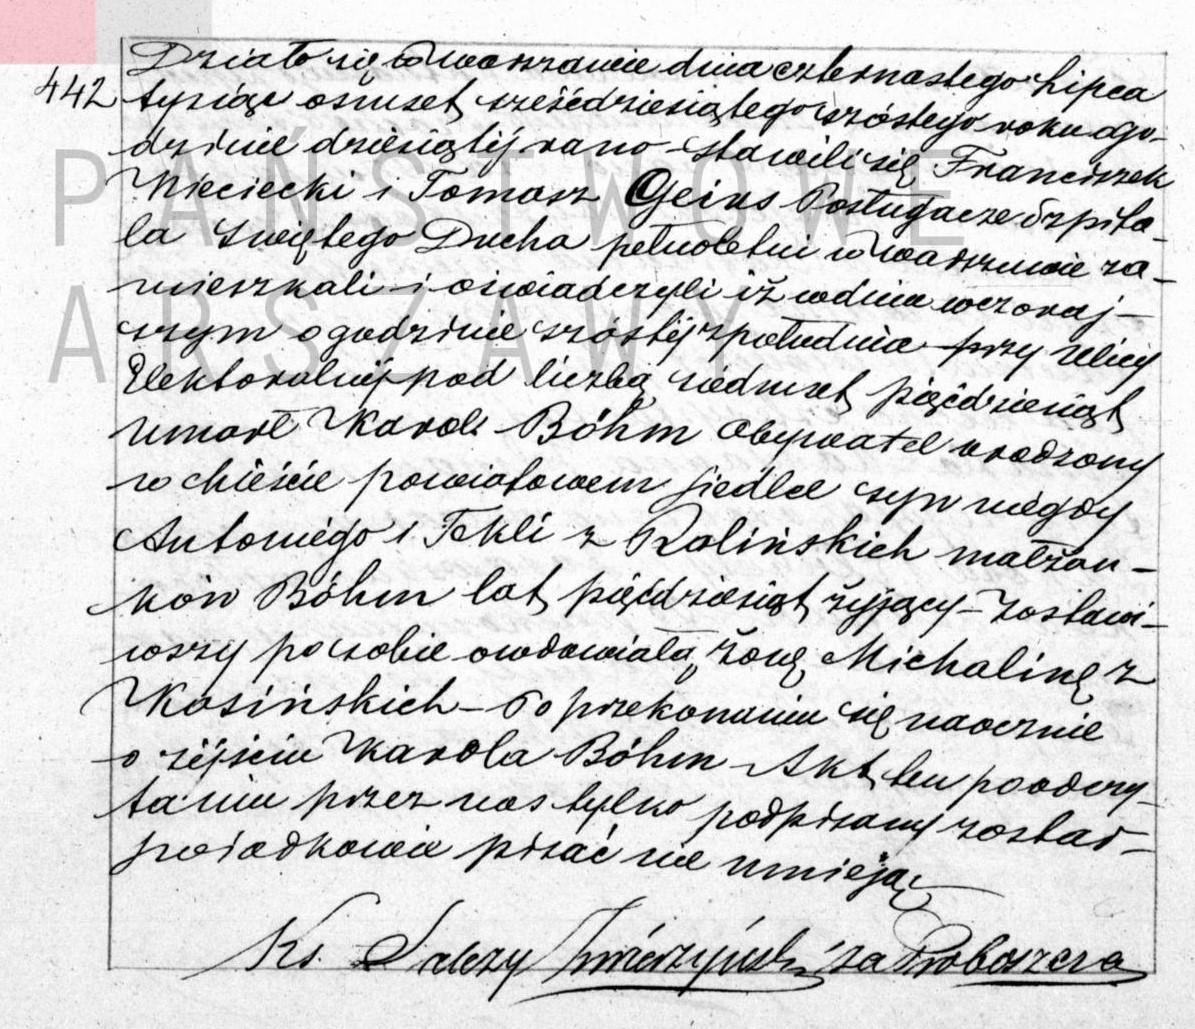 442
Działo się w Warszawie dnia czternastego Lipca
tysiąc osmset sześćdziesiątego szóstego roku o go-
dzinie dziesiątéj rano – stawili się Franciszek
Nieciecki i Tomasz Posługacze Szpita-
la Świętego Ducha pełnoletni w Warszawie za-
mieszkali i oświadczyli iż w dniu wczoraj-
szym o godzinie szóstéj z południa przy Ulicy
Elektoralnéj pod liczbą siedmset pięćdziesiąt
umarł Karol Böhm Obywatel urodzony
w Mieście powiatowem Siedlce syn niegdy
Antoniego i Tekli z Rolińskich małżon-
ków Böhm lat pięćdziesiąt żyjący – zostawi-
wszy po sobie owdowiałą żonę Michalinę z
Kosińskich – Po przekonaniu się naocznie
o zejściu Karola Böhm Akt ten po odczy-
taniu przez nas tylko podpisany został –
świadkowie pisać nie umieją
Ks. Salezy za Proboszcza
PAŃSTWOWE
ARSZAWY